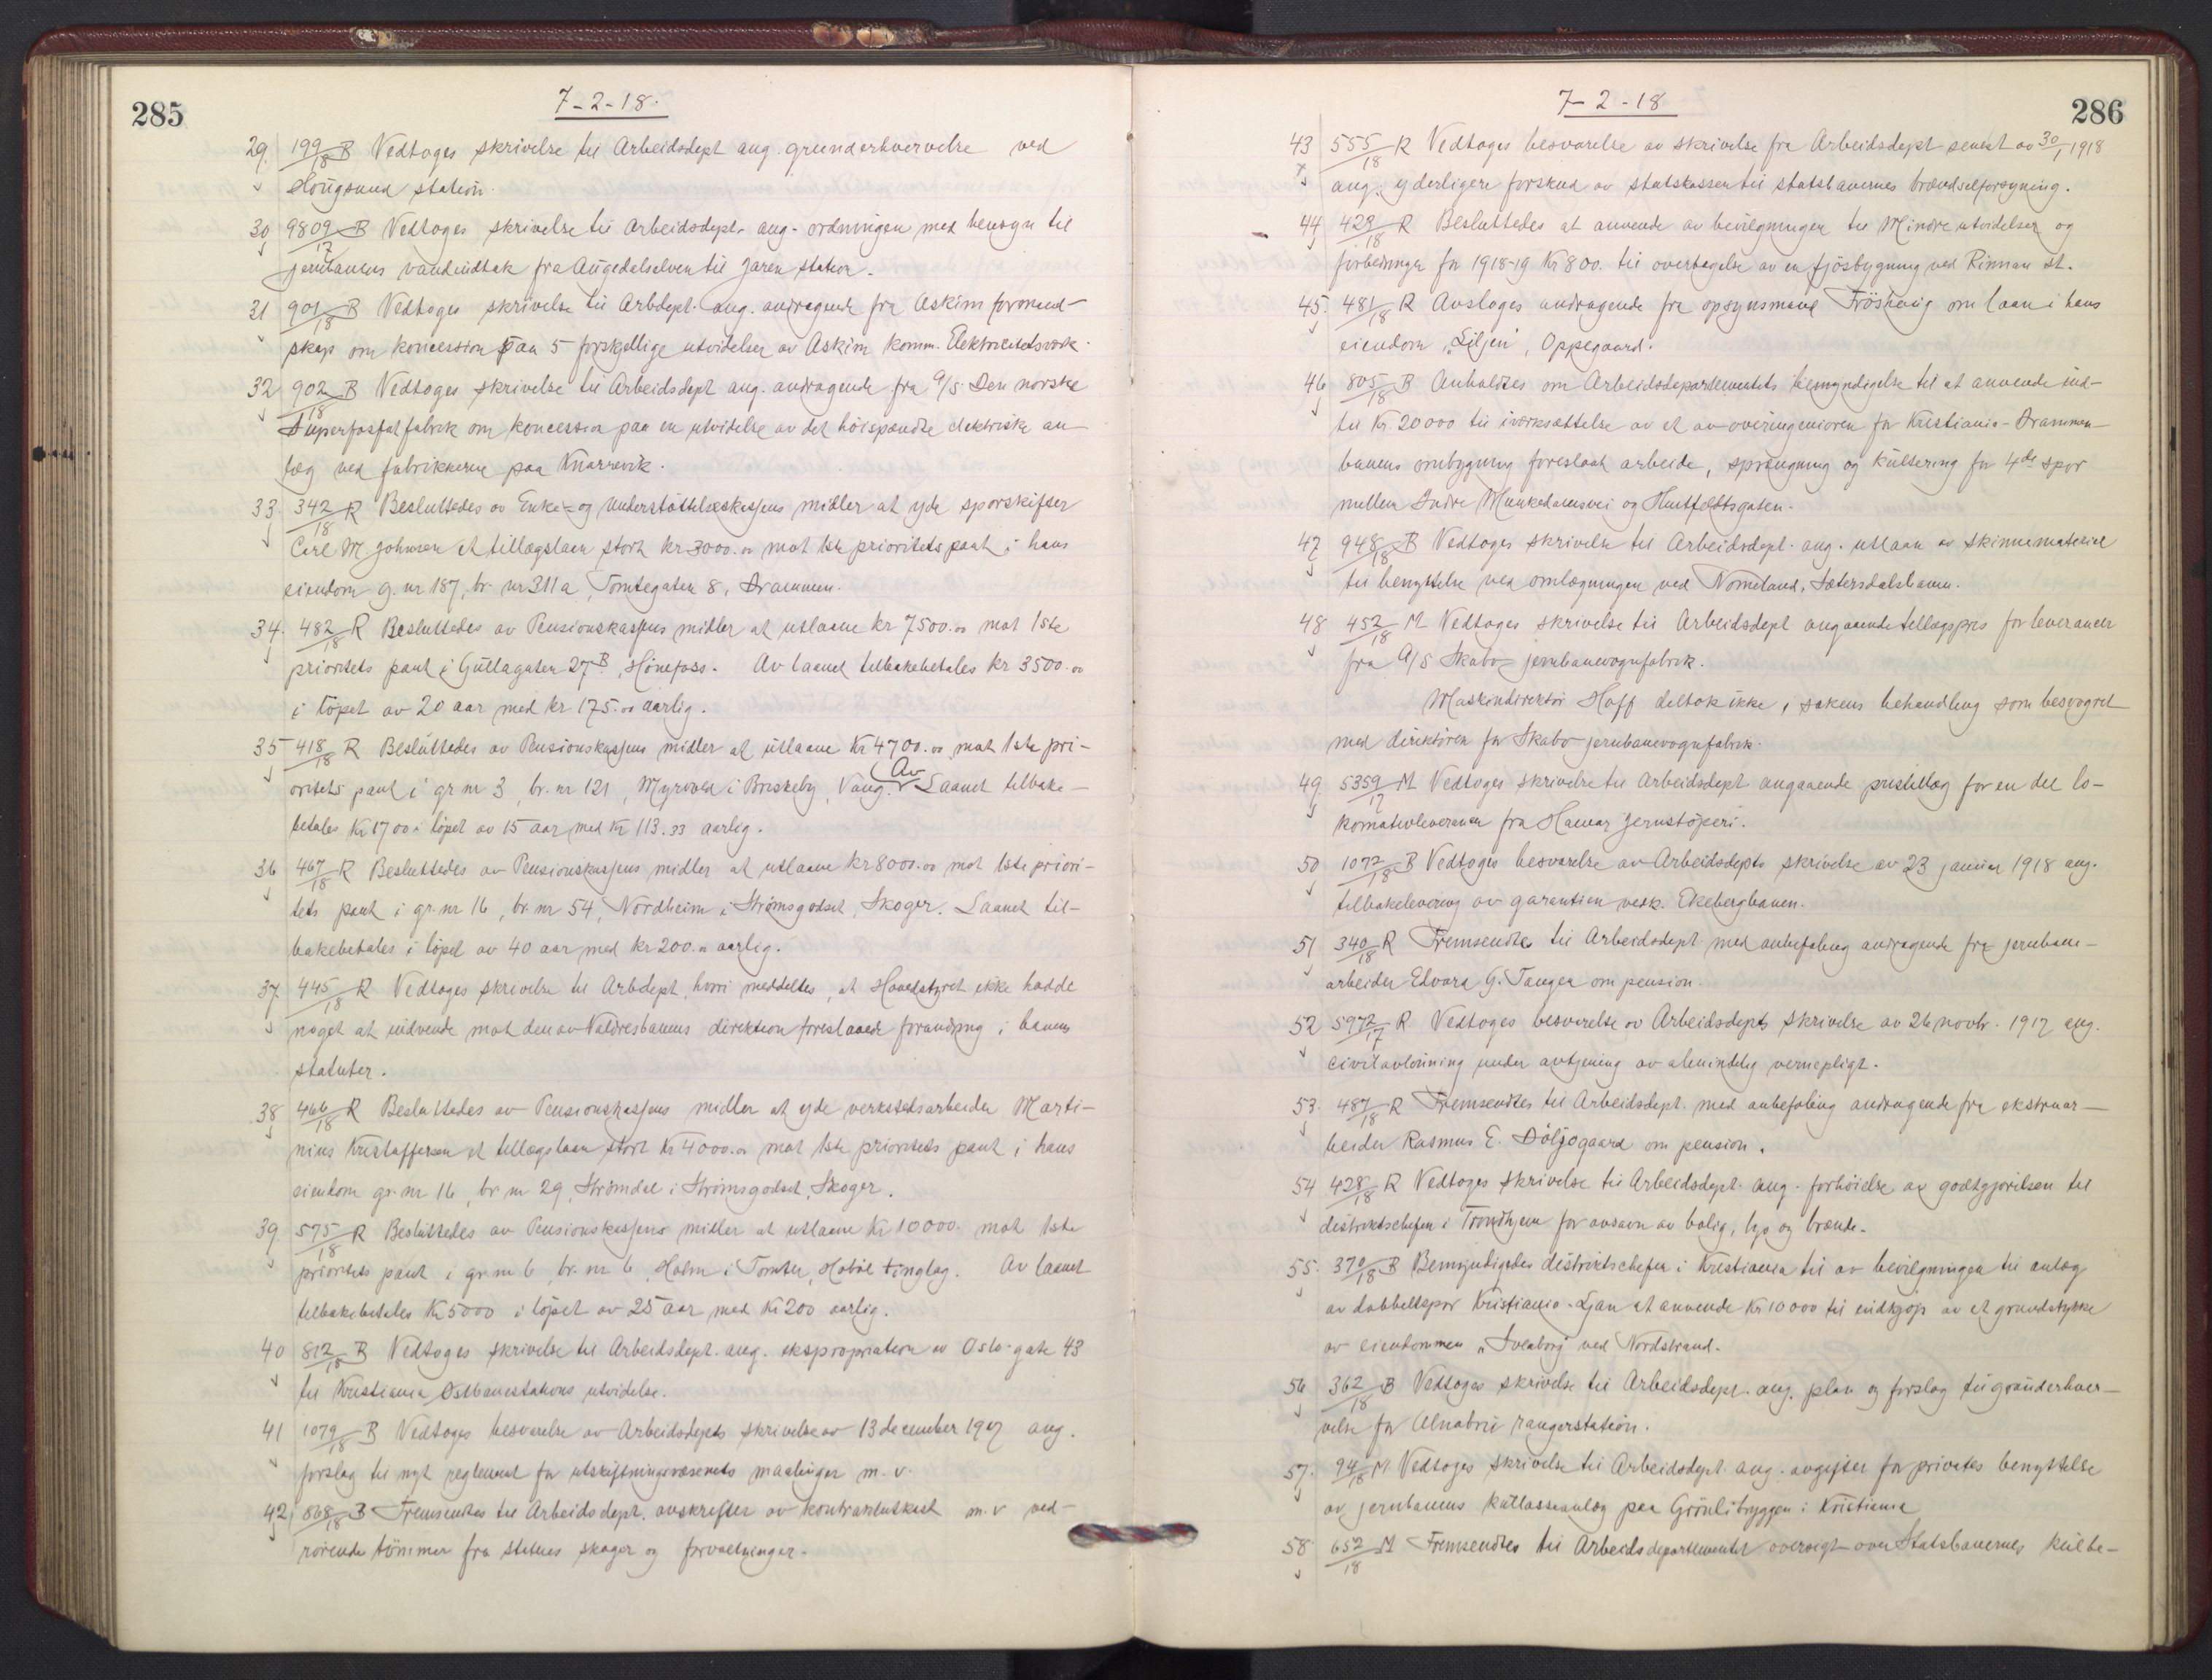 285
7-2-18.
29. 199/18 B Vedtoges skrivelse til Arbeidsdept ang. grunderhvervelse ved
Hougsund station.
30 9809/17 B Vedtoges skrivelse til Arbeidsdept. ang. ordningen med hensyn til
jernbanens vandindtak fra Augedalselven til Jaren station.
31 901/18 B Vedtoges skrivelse til Arbdept. ang. andragende fra Askim formand-
skap om koncession paa 5 forskjellige utvidelser av Askim komm. Elektricitetsverk.
32 902/18 B Vedtoges skrivelse til Arbeidsdept ang. andragende fra A/S Den norske
Superfosfatfabrik om koncession paa en utvidelse av det høispændte elektriske an-
læg ved fabrikkerne paa Knarrevik.
33. 342/18 R Besluttedes av Enke- og Understøttelseskassens midler at yde sporskifter
Carl M. Johnsen et tillægslaan stort kr 3000.00 mot 1ste prioritets pant i hans
eiendom g. nr 187, br. nr 311a, Tomtegaten 8, Drammen.
34. 482/18 R Besluttedes av Pensionskassens midler at utlaane kr 7500.00 mot 1ste
prioritets pant i Gullagaten 27B, Hønefoss. Av laanet tilbakebetales kr 3500.00
i løpet av 20 aar med kr 175.00 aarlig.
35 418/18 R Besluttedes av Pensionskassens midler at utlaane Kr 4700.00 mot 1ste pri-
oritets pant i gr nr 3, br. nr 121, Myrvold i Briskeby, Vang. Av Laanet tilbake-
betales Kr 1700 i løpet av 15 aar med Kr 113.33 aarlig.
36 467/18 R Besluttedes av Pensionskassens midler at utlaane kr 8000.00 mot 1ste priori-
tets pant i gr. nr 16, br. nr 54, Nordheim i Strømsgodset, Skoger. Laanet til-
bakebetales i løpet av 40 aar med kr 200.00 aarlig.
37. 445/18 R Vedtoges skrivelse til Arbdept, hvori meddeltes, at Hovedstyret ikke hadde
noget at indvende mot den av Valdresbanens direktion foreslaaede forandring i banens
statuter.
38 466/18 R Besluttedes av Pensionskassens midler at yde verkstedsarbeider Marti-
nius Kristoffersen et tillægslaan stort Kr 4000.00 mot 1ste prioritets pant i hans
eiendom gr. nr 16, br nr 29, Strømdal i Strømsgodset, Skoger.
39 575/18 R Besluttedes av Pensionskassens midler at utlaane Kr 10000. mot 1ste
prioritets pant i gr. nr 6, br. nr 6, Holm i Tomter, Hobøl tinglag. Av laanet
tilbakebetales Kr 5000 i løpet av 25 aar med Kr 200 aarlig.
40 812/18 B Vedtoges skrivelse til Arbeidsdept. ang. ekspropriation av Oslo gate 43
til Kristiania Østbanestations utvidelse.
41 1079/18 B Vedtoges besvarelse av Arbeidsdepts skrivelse av 13 december 1917 ang.
forslag til nyt reglement for utskiftningsvæsenets maalinger m. v.
42. 868/18 B Fremsendtes til Arbeidsdept. avskrifter av kontraktutkast m. v ved-
rørende tømmer fra statens skoger og forvaltninger.
286
7-2-18
43 555/18 R Vedtoges besvarelse av skrivelse fra Arbeidsdept senest av 30/1 1918
ang. yderligere forskud av statskassen til statsbanernes brændselforsyning.
44 429/18 R Besluttedes at anvende av bevilgningen til Mindre utvidelser og
forbedringer for 1918-19 Kr 800. til overtagelse av en fjøsbygning ved Rinnan st.
45. 481/18 R Avsloges andragende fra opsynsmand Frøshaug om laan i hans
eiendom „Liljen", Oppegaard.
46 805/18 B Anholdtes om Arbeidsdepartementets bemyndigelse til at anvende ind-
til Kr. 20000 til iverksættelse av et av overingeniøren for Kristiania-Drammen-
banens ombygning foreslaat arbeide, sprængning og kultsering for 4de spor
mellem Indre Munkedamsvei og Huitfeldtsgaten.
47 948/18 B Vedtoges skrivelse til Arbeidsdept. ang. utlaan av skinnemateriel
til benyttelse ved omlægningen ved Nomeland, Sætersdalsbanen.
48 452/18 M Vedtoges skrivelse til Arbeidsdept angaaende tillægspris for leverancer
fra A/S Skabo jernbanevognfabrik.
Maskindirektør Hoff deltok ikke i sakens behandling som besvogret
med direktøren for Skabo jernbanevognfabrik.
49 5359/17 M Vedtoges skrivelse til Arbeidsdept angaaende pristillæg for en del lo-
komotivleverancer fra Hamar jernstøperi.
50 1072/18 B Vedtoges besvarelse av Arbeidsdepts skrivelse av 23 januar 1918 ang.
tilbakelevering av garantien vedk. Ekebergbanen.
51 340/18 R Fremsendtes til Arbeidsdept med anbefaling andragende fra jernbane-
arbeider Edvard G. Tangen om pension.
52 5972/17 R Vedtoges besvarelse av Arbeidsdepts skrivelse av 26 novbr. 1917 ang.
civilavlønning under avtjening av almindelig vernepligt.
53. 487/18 R Fremsendtes til Arbeidsdept. med anbefaling andragende fra ekstraar-
beider Rasmus E. om pension.
54 428/18 R Vedtoges skrivelse til Arbeidsdept. ang. forhøielse av godtgjørelsen til
distriktschefen i Trondhjem for avsavn av bolig, lys og brænde.
55. 370/18 B Bemyndigedes distriktschefen i Kristiania til av bevilgningen til anlæg
av dobbeltspor Kristiania-Ljan at anvende Kr 10000 til indkjøp av et grundstykke
av eiendommen „Sveaborg" ved Nordstrand.
56 362/18 B Vedtoges skrivelse til Arbeidsdept. ang. plan og forslag til grunderhver-
velse for Alnabru rangerstation.
57. 94/18 M Vedtoges skrivelse til Arbeidsdept. ang. avgifter for privates benyttelse
av jernbanens kullasseanlæg paa Grønlibryggen i Kristiania
58 652/18 M Fremsendtes til Arbeidsdepartementet oversigt over Statsbanernes kulbe-